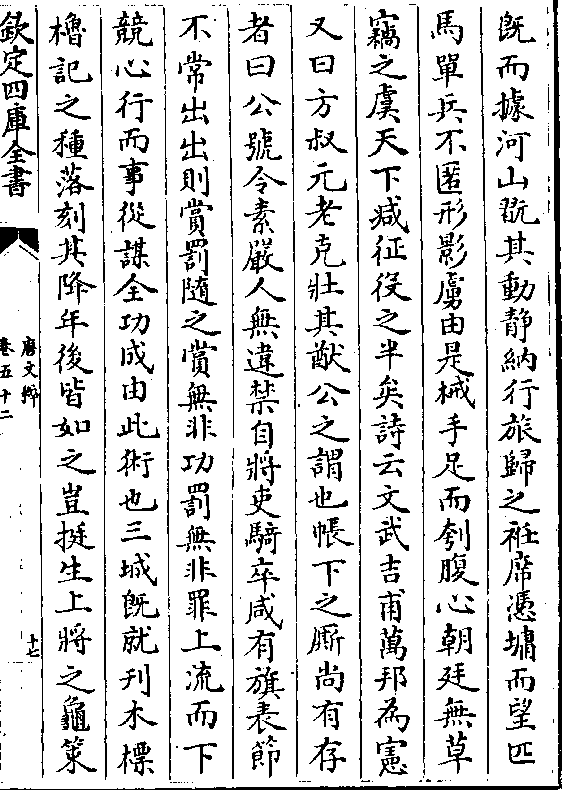 既而據河山翫其動靜納行旅歸之袵席憑墉而望匹
馬單兵不匿形影虜由是械手足而刳腹心朝廷無草
竊之虞天下減征役之半矣詩云文武吉甫萬邦為憲
又曰方叔元老克壯其猷公之謂也帳下之厮尚有存
者曰公號令素嚴人無違禁自將吏騎卒咸有旗表節
不常出出則賞罰隨之賞無非功罰無非罪上流而下
競心行而事從謀全功成由此術也三城既就刋木標
櫓記之種落刻其降年後皆如之豈挺生上將之龜策
欽定四庫全書
唐文粹
卷五十二
十七